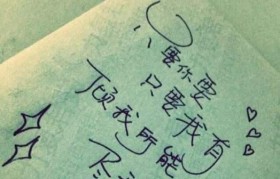 只要你要
只要我有
倾我所能